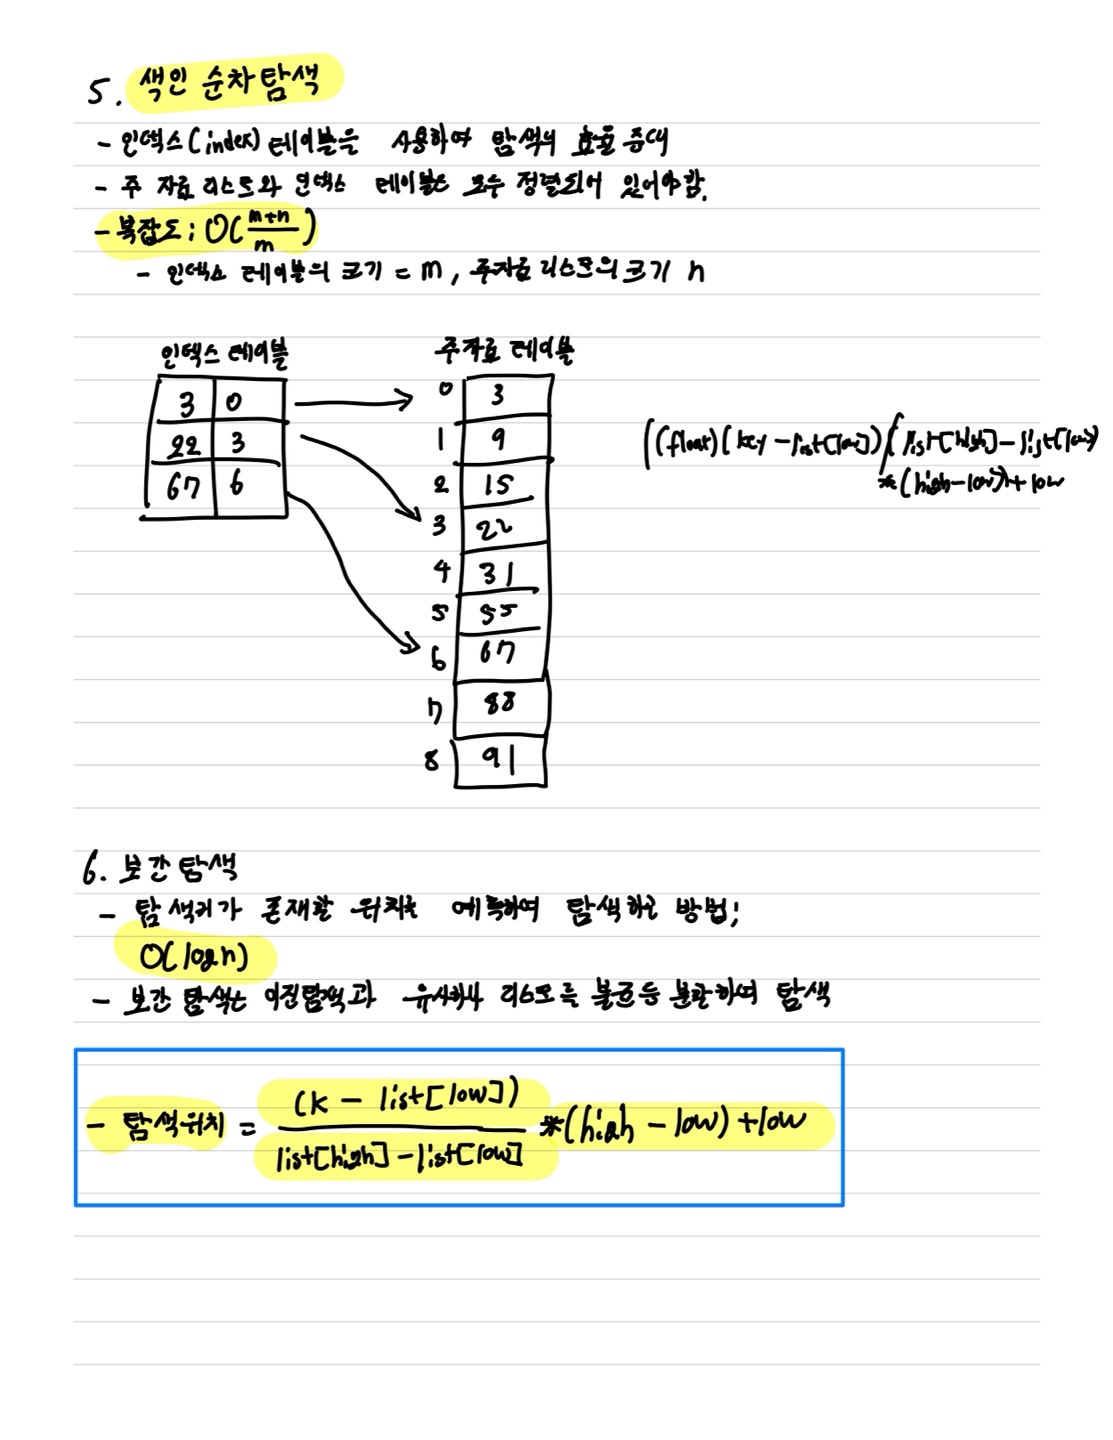 5. 색인 순차 탐색
- 인덱스(index) 테이블을 사용하여 탐색의 효율 증대
- 주 자료 리스트와 인덱스 테이블은 모두 정렬되어 있어야함.
- 복잡도 : O(\frac{m+n}{m})
- 인덱스 테이블의 크기 = m, 주자료 리스트의 크기 n
인덱스 테이블
3 0
22 3
67 6
주자료 테이블
0 3
1 9
2 15
3 22
4 31
5 55
6 67
7 88
8 91
((float)(key-list[low])/(list[high]-list[low])
*(high-low))+low
6. 보간 탐색
- 탐색키가 존재할 위치를 예측하여 탐색하는 방법;
O(logn)
- 보간 탐색은 이진탐색과 유사하나 리스트를 불균등 분할하여 탐색
- 탐색위치 = \frac{(k - list[low])}{list[high] - list[low]} *(high - low) + low